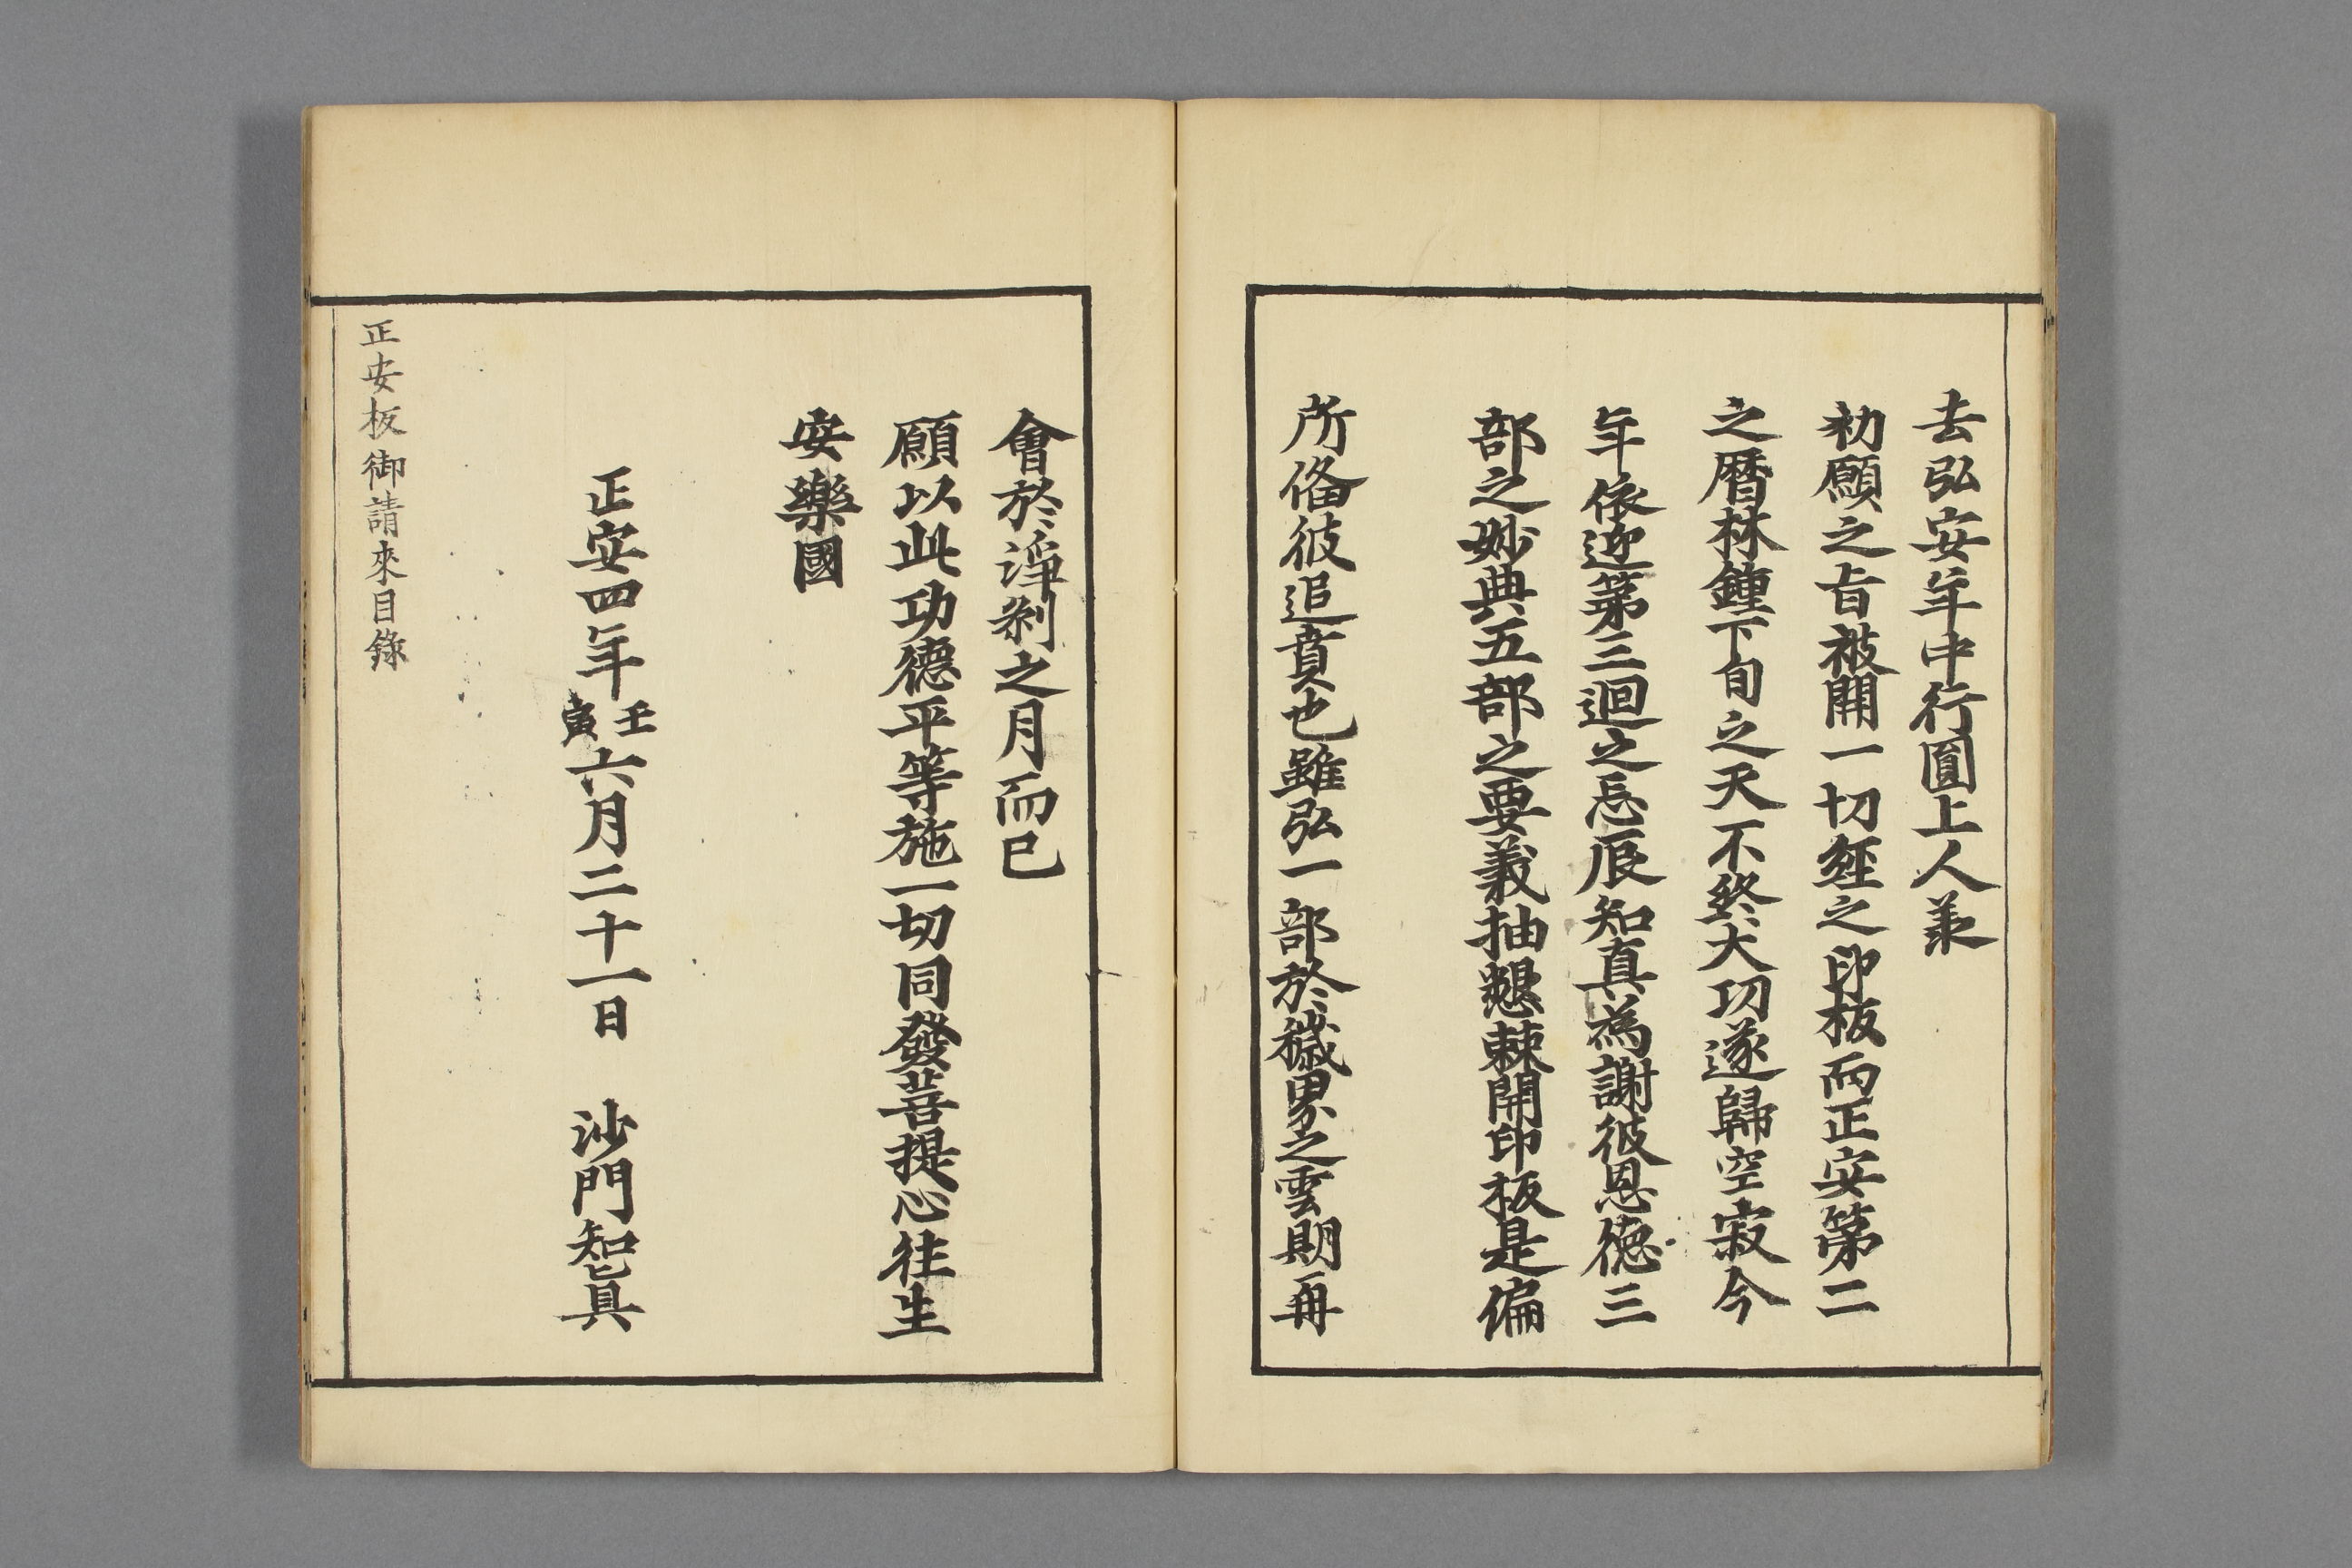 去弘安年中行圓上人兼
初願之旨被開一切経之印板而正安第二
之曆林鍾下旬之天不終大功遂歸空寂今
年依迎第三迴之忌辰知真為謝彼恩徳三
部之妙典五部之要義抽懇棘開印板是偏
所俻彼追賁也雖弘一部於穢界之雲期再
會於淨刹之月而已
願以此功德平等施一切同發菩提心往生
安樂國
正安四年壬寅六月二十一日 沙門知真
正安板御請來目錄